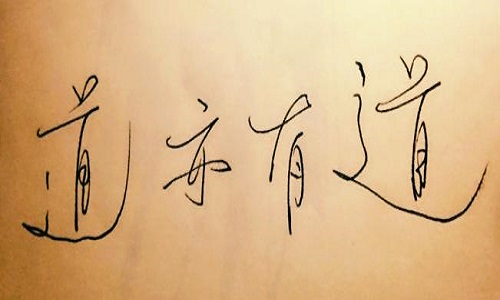 道亦有道